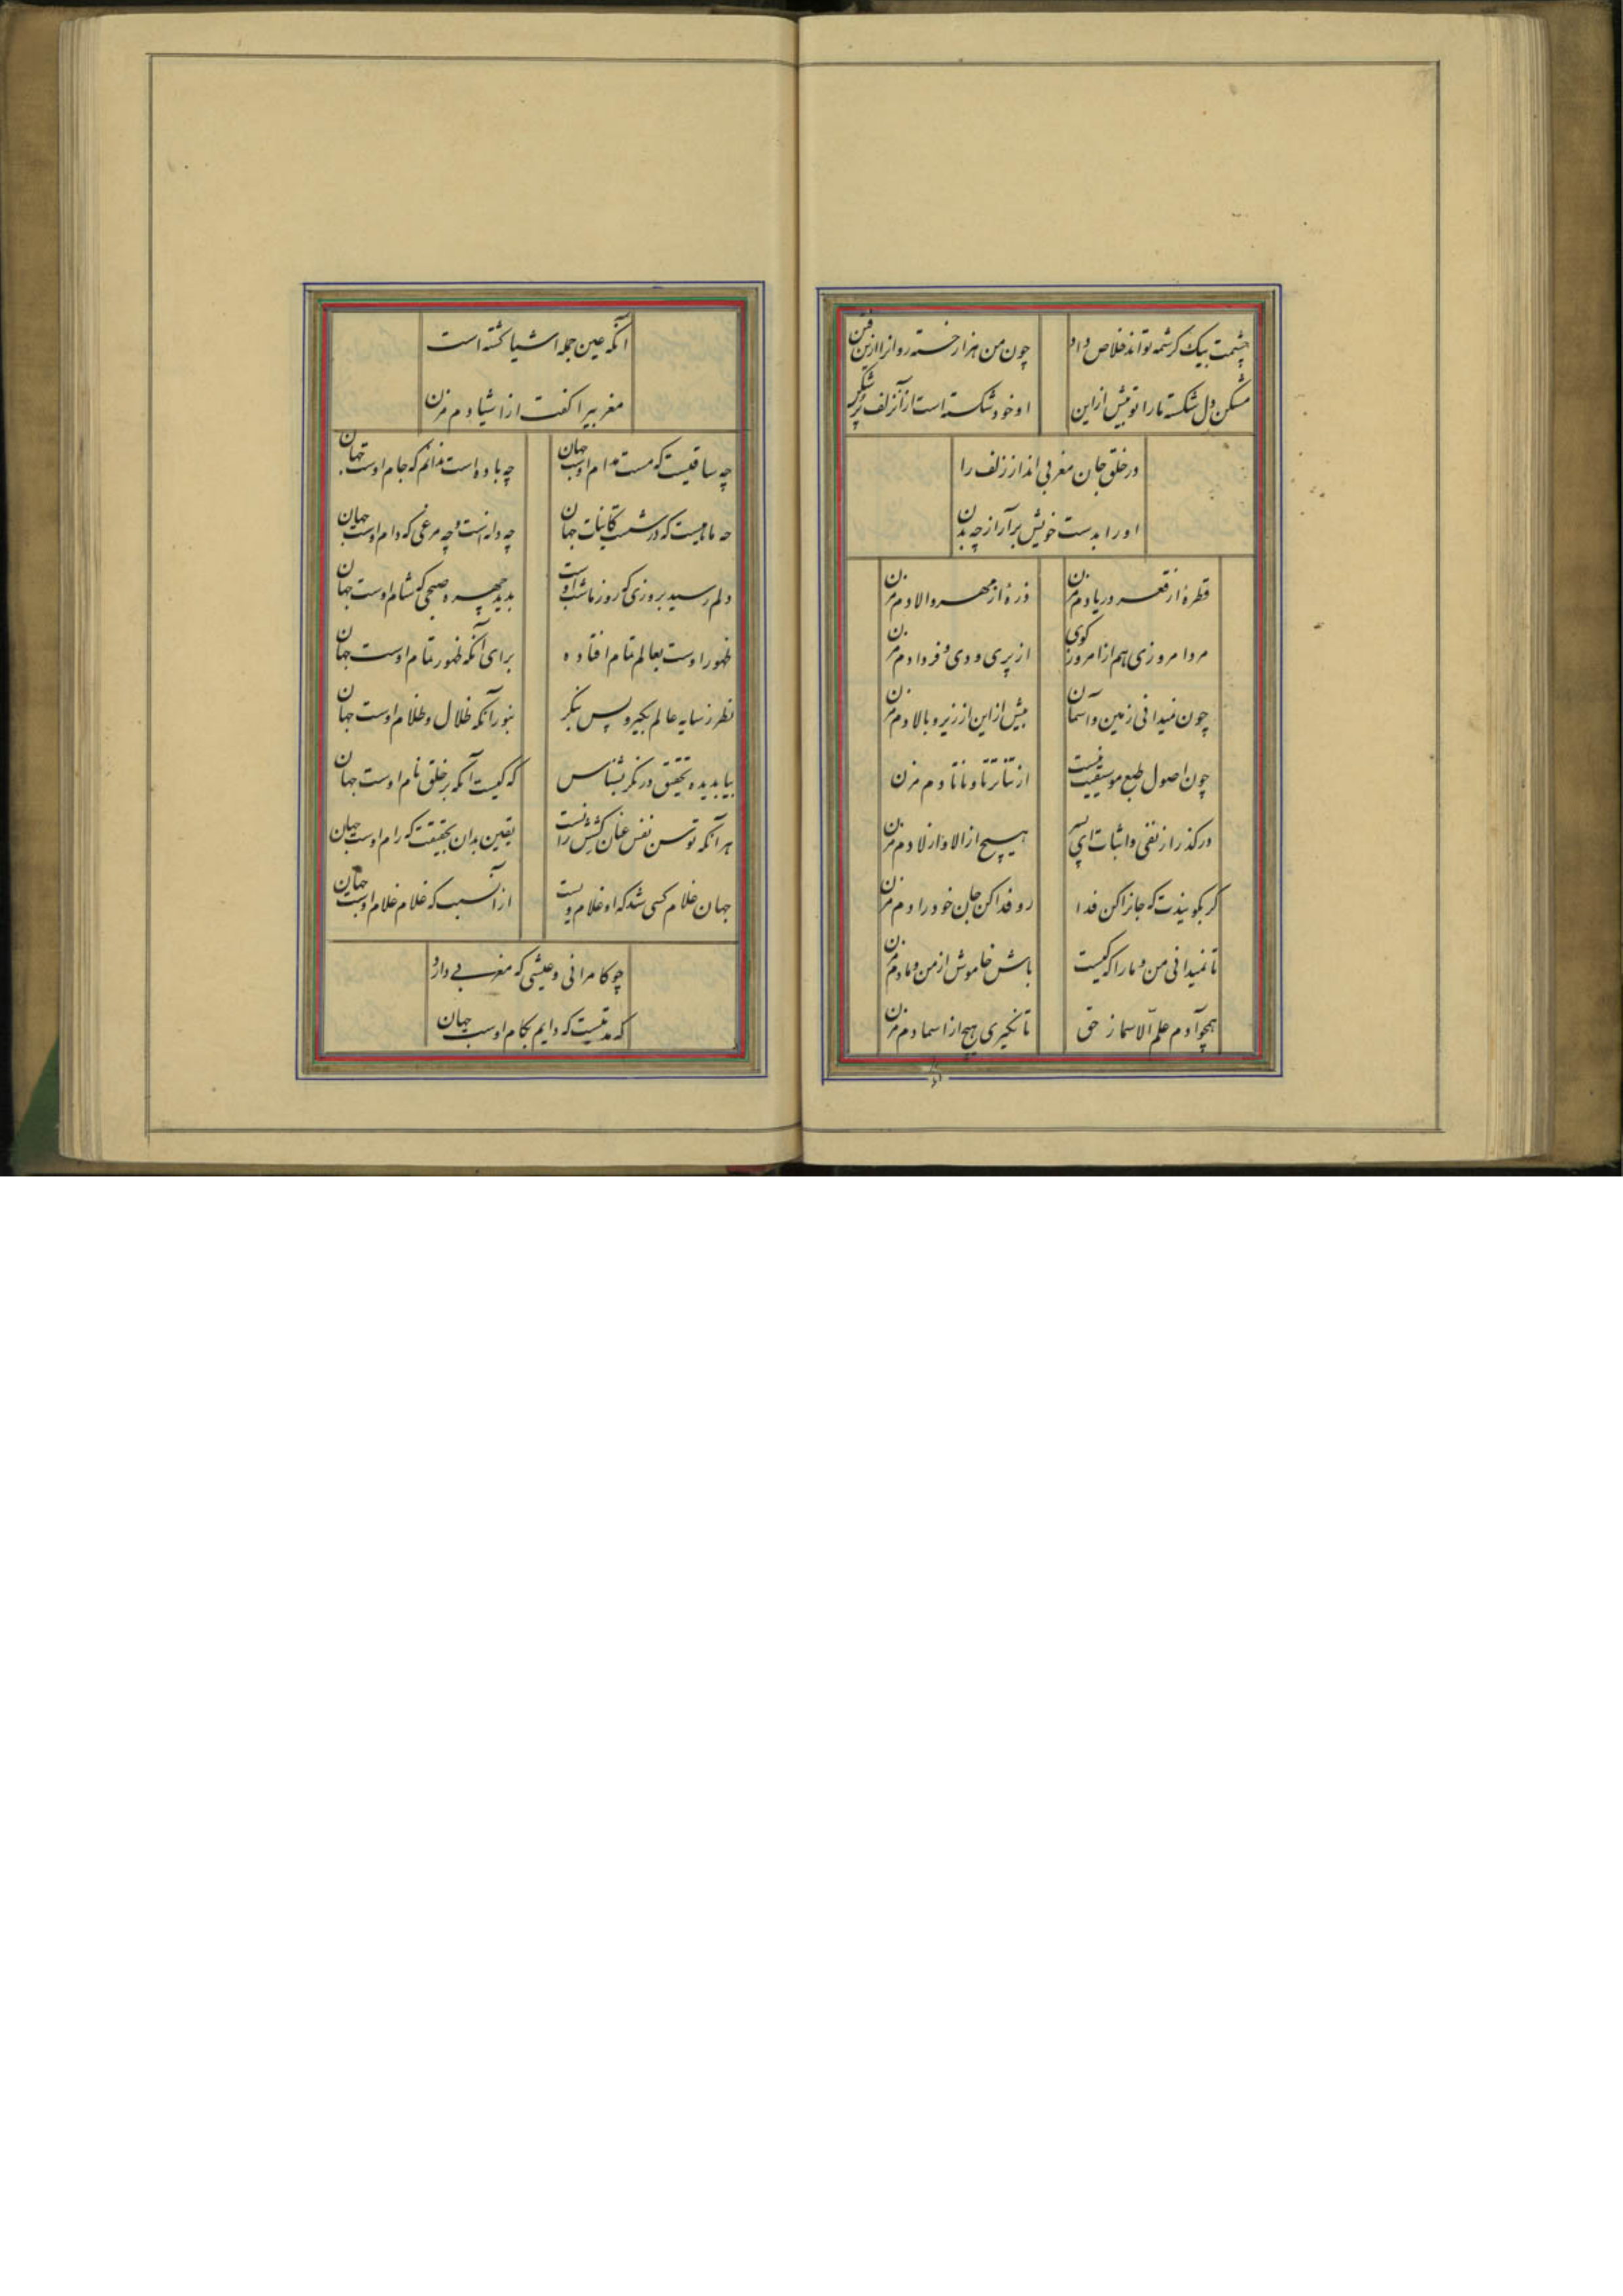 چشمت بیک کرشمه تواند خلاص داد
چون من هزار خسته روانرا ازین فتن
مشکن دل شکسته ما را تو بیش ازاین
او خود شکسته است ازآنزلف پر شکن
در خلق جان مغربی انداز زلف را
او را بدست خویش برآر از چه بدن
قطرهٔ از قعر دریا دم مزن
ذرهٔ از مهر والا دم مزن
مرد امروزی هم از امروز کوی
از پری و دی و فردا دم مزن
چون نمیدانی زمین و آسمان
بیش ازاین از زیر و بالا دم مزن
چون اصول طبع موسیقیت نیست
از تنا تر تا و تا نا دم مزن
درکذر از نفی و اثبات ای پسر
هیچ از الا و از لا دم مزن
کر بکویندت که جانرا کن فدا
رو فدا کن جان خود را دم مزن
تا نمیدانی من و ما را که کیست
باش خاموش از من و ما دم مزن
همچو آدم علم الاسما ز حق
تا نکیری هیچ از اسما دم مزن
آنکه عین جمله اشیا کشته است
مغربیرا کفت از اشیا دم مزن
چه ساقیست که مست مدام اوست جهان
چه باده است ندانم که جام اوست جهان
چه ماهیست که در شست کاینات جهان
چه دانه است و چه مرغی که دام اوست جهان
دلم رسید بروزی که روز ما شب اوست
بدید چهره صبحی که شام اوست جهان
ظهور اوست بعالم تمام افتاده
برای آنکه ظهور تمام اوست جهان
نظر ز سایه عالم بکیر و پس بنکر
بنور آنکه ظلال و ظلام اوست جهان
بیا بدیده تحقیق درنکر بشناس
که کیست آنکه بر خلق نام اوست جهان
هر آنکه توسن نفس عنان کشش را
یقین بدان بحقیقت که رام اوست جهان
جهان غلام کسی شد که او غلام ویست
از آنسبب که غلام غلام اوست جهان
چو کامرانی و عیشی که مغربی دارد
که مدتیست که دایم بکام اوست جهان